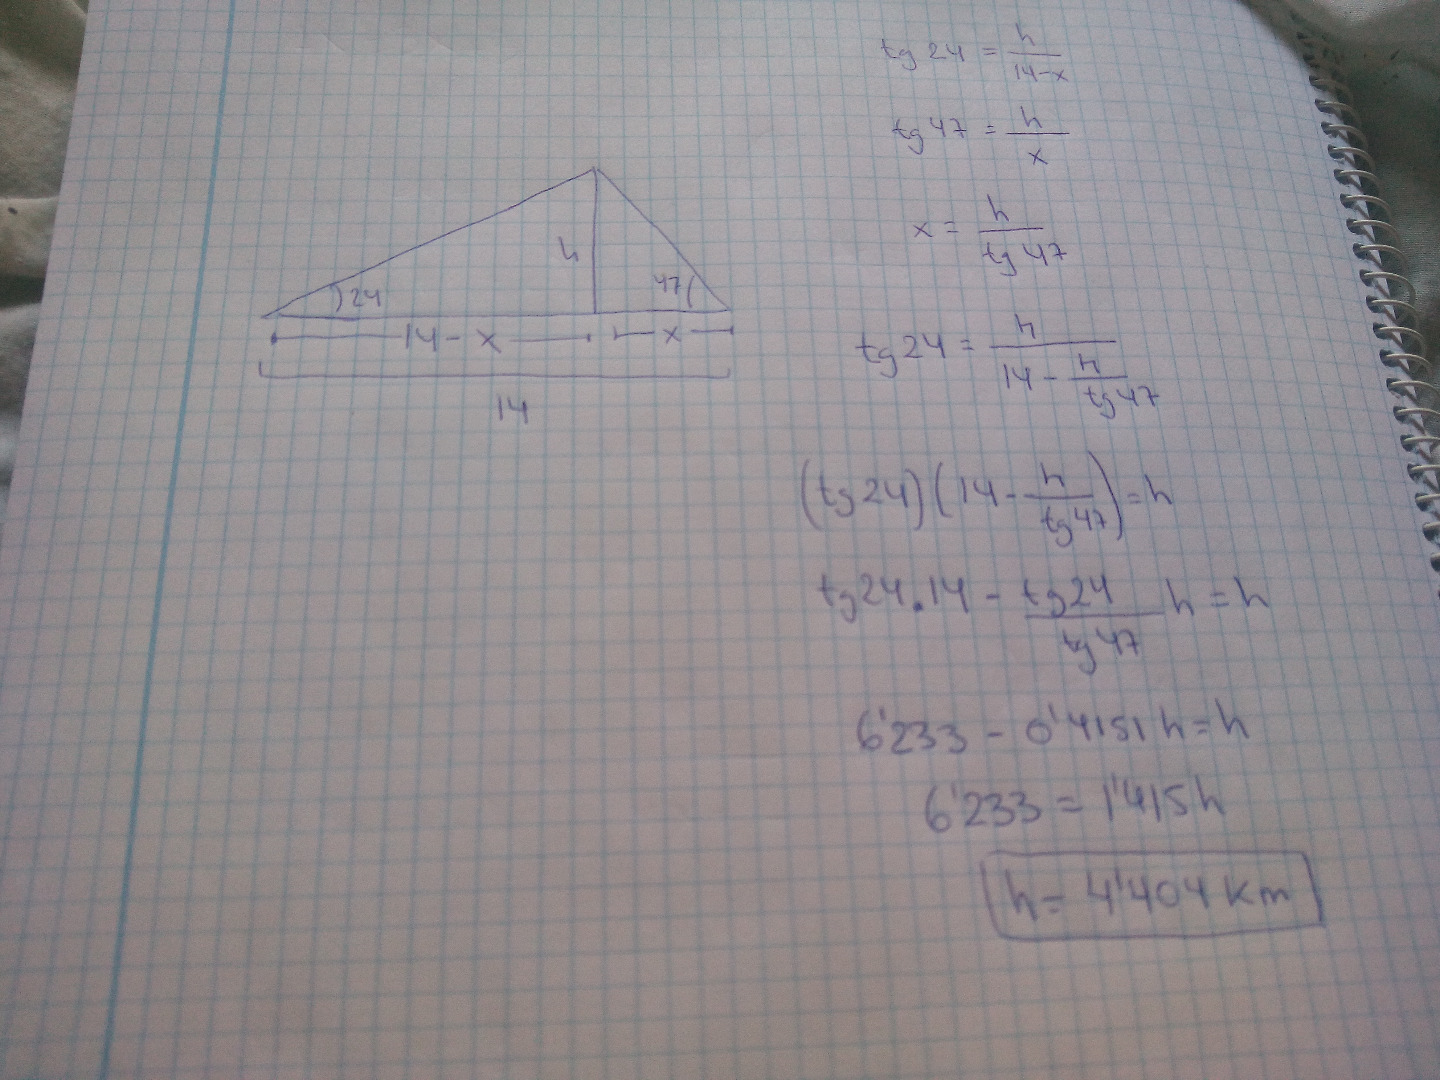 h
24
47
14 - x
x
14
tg 24 = h / 14-x
tg 47 = h / x
x = h / tg 47
tg 24 = h / (14 - h / tg 47)
(tg 24) (14 - h / tg 47) = h
tg 24 . 14 - tg 24 / tg 47 h = h
6'233 - 0'4151 h = h
6'233 = 1'415 h
h = 4'404 Km